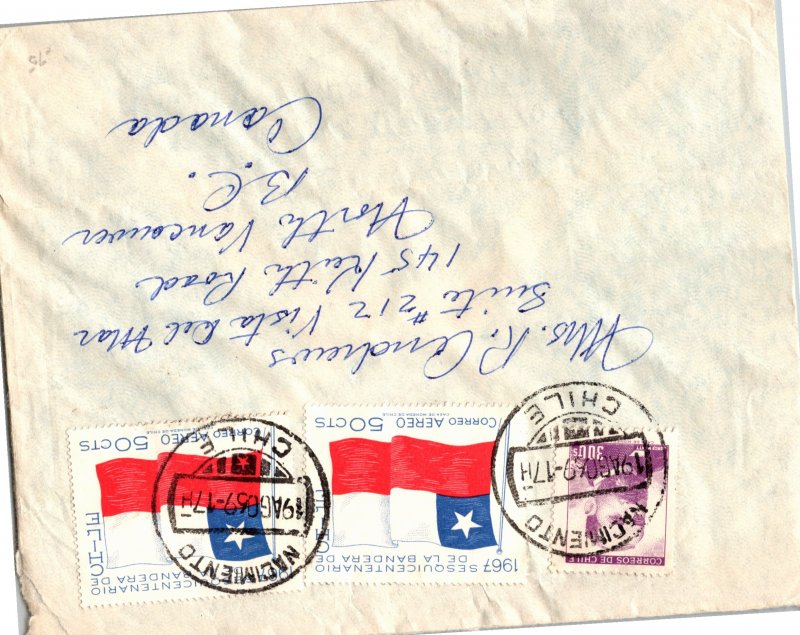 CORREOS DE CHILE
300 Cts
NACIMIENTO
19AGO69-17H
CHILE
1967 SESQUICENTENARIO
DE LA BANDERA DE
CHILE
CORREO AEREO 50 CTS
CASA DE MONEDA DE CHILE
SESQUICENTENARIO
BANDERA DE
CHILE
CORREO AEREO 50 CTS
NACIMIENTO
19AGO69-17H
CHILE
Mrs. R. Andrews
Suite #212 Vista Del Mar
145 Keith Road
North Vancouver
B.C.
Canada